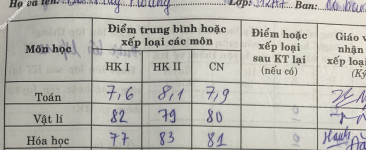 Họ và tên: Lớp: 12A7 Ban:
Môn học
Điểm trung bình hoặc
xếp loại các môn
HK I HK II CN
Điểm hoặc
xếp loại
sau KT lại
(nếu có)
Giáo v
nhận
xếp loại
(Ký
Toán 7,6 8,1 7,9
Vật lí 82 79 80
Hóa học 77 83 81